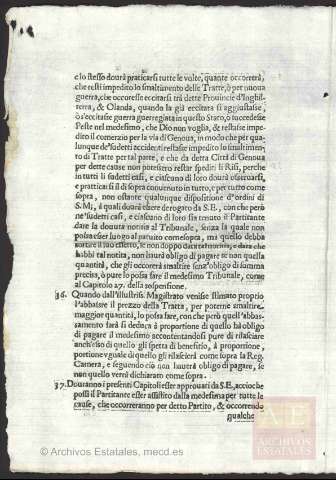 e lo stesso dourà praticarsi tutte le volte, quante occorrerà,
che resti impedito lo smaltimento delle Tratte, ò per nuoua
guerra, che occoresse eccitarsi trà dette Prouincie d'Inghil-
terra, & Olanda, quando la già eccitata si aggiustasse,
ò s'eccitasse guerra guerreggiata in questo Stato, ò succedesse
Peste nel medesimo, che Dio non voglia, & restasse impe-
dito il comerzio per la via di Genoua, in modo che per qua-
lunque de' sudetti accidenti restasse impedito lo smaltimen-
to di Tratte per tal parte, e che da detta Città di Genoua
per dette cause non potessero restar spediti li Risi, perche
in tutti li sudetti casi, e ciascuno di loro dourà osseruarsi,
e praticarsi di sopra conuenuto in tutto, e per tutto come
sopra, non ostante qualunque dispositione d'ordini di
S.M; à quali dourà essere derogato da S.E, con che però
ne' sudetti casi, e ciascuno di loro sia tenuto il Partitante
dare la douuta notitia al Tribunale, senza la quale non
possa esser luogo al partito come sopra, ma quello debba
sortire il suo effetto, se non doppo data tal notitia, e data che
habbi tal notita, non haurà obligo di pagare se non quella
quantità, che gli occorrerà smaltire senz'obligo di summa
precisa, ò pure lo possa fare il medesimo Tribunale, come
al Capitolo 27. della sospensione.
36. Quando dall'Illustriss. Magistrato venisse stimato proprio
l'abbassare il prezzo della Tratta, per poterne smaltire
maggior quantità, lo possa fare, con che però quell'abbas-
samento farà si deduca à proportione di quello hà obligo
di pagare il medesimo accontentandosi pure di rilasciare
anch'esso di quello gli spetta di benefitio, à proportione,
portione vguale di quello gli rilascierà come sopra la Reg.
Camera, e seguendo ciò non haurà obligo di pagare, se
non quello verrà dichiarato come sopra.
37. Douranno i presenti Capitoli esser approuati da S.E, accioche
possi il Partitante esser assistito dalla medesima per tutte le
cause, che occorreranno per detto Partito, & occorrendo
qualche
AE
ARCHIVOS
ESTATALES
© Archivos Estatales, mecd.es